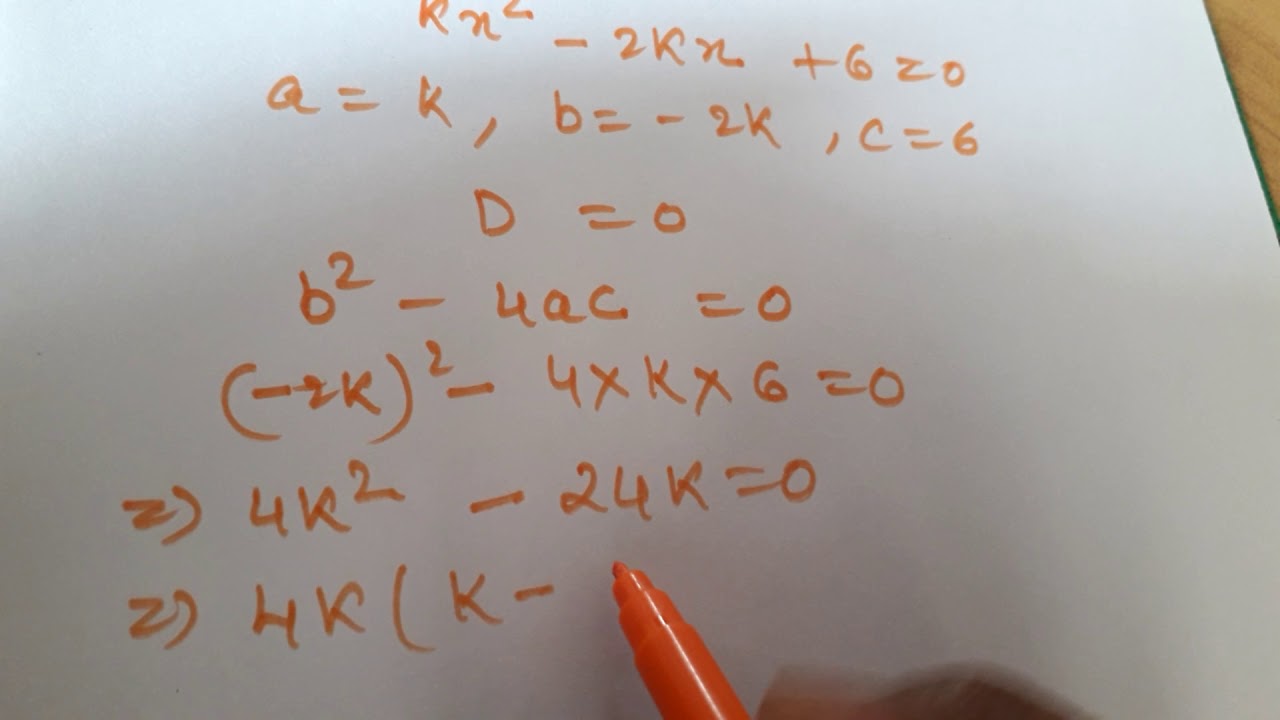 Kx² - 2Kx + 6 = 0
a = K, b = - 2K, c = 6
D = 0
b² - 4ac = 0
(-2K)² - 4 × K × 6 = 0
=> 4K² - 24K = 0
=> 4K ( K -